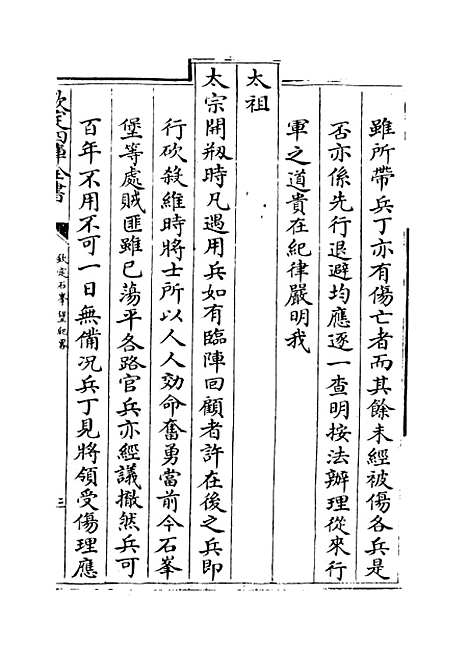 雖所帶兵丁亦有傷亡者而其餘未經被傷各兵是
否亦係先行退避均應逐一查明按法辦理從來行
軍之道貴在紀律嚴明我
太祖
太宗開剏時凡遇用兵如有臨陣回顧者許在後之兵即
行砍殺維時將士所以人人効命奮勇當前今石峯
堡等處賊匪雖已蕩平各路官兵亦經議撤然兵可
百年不用不可一日無備况兵丁見將領受傷理應
欽定四庫全書
欽定石峯堡紀畧
三